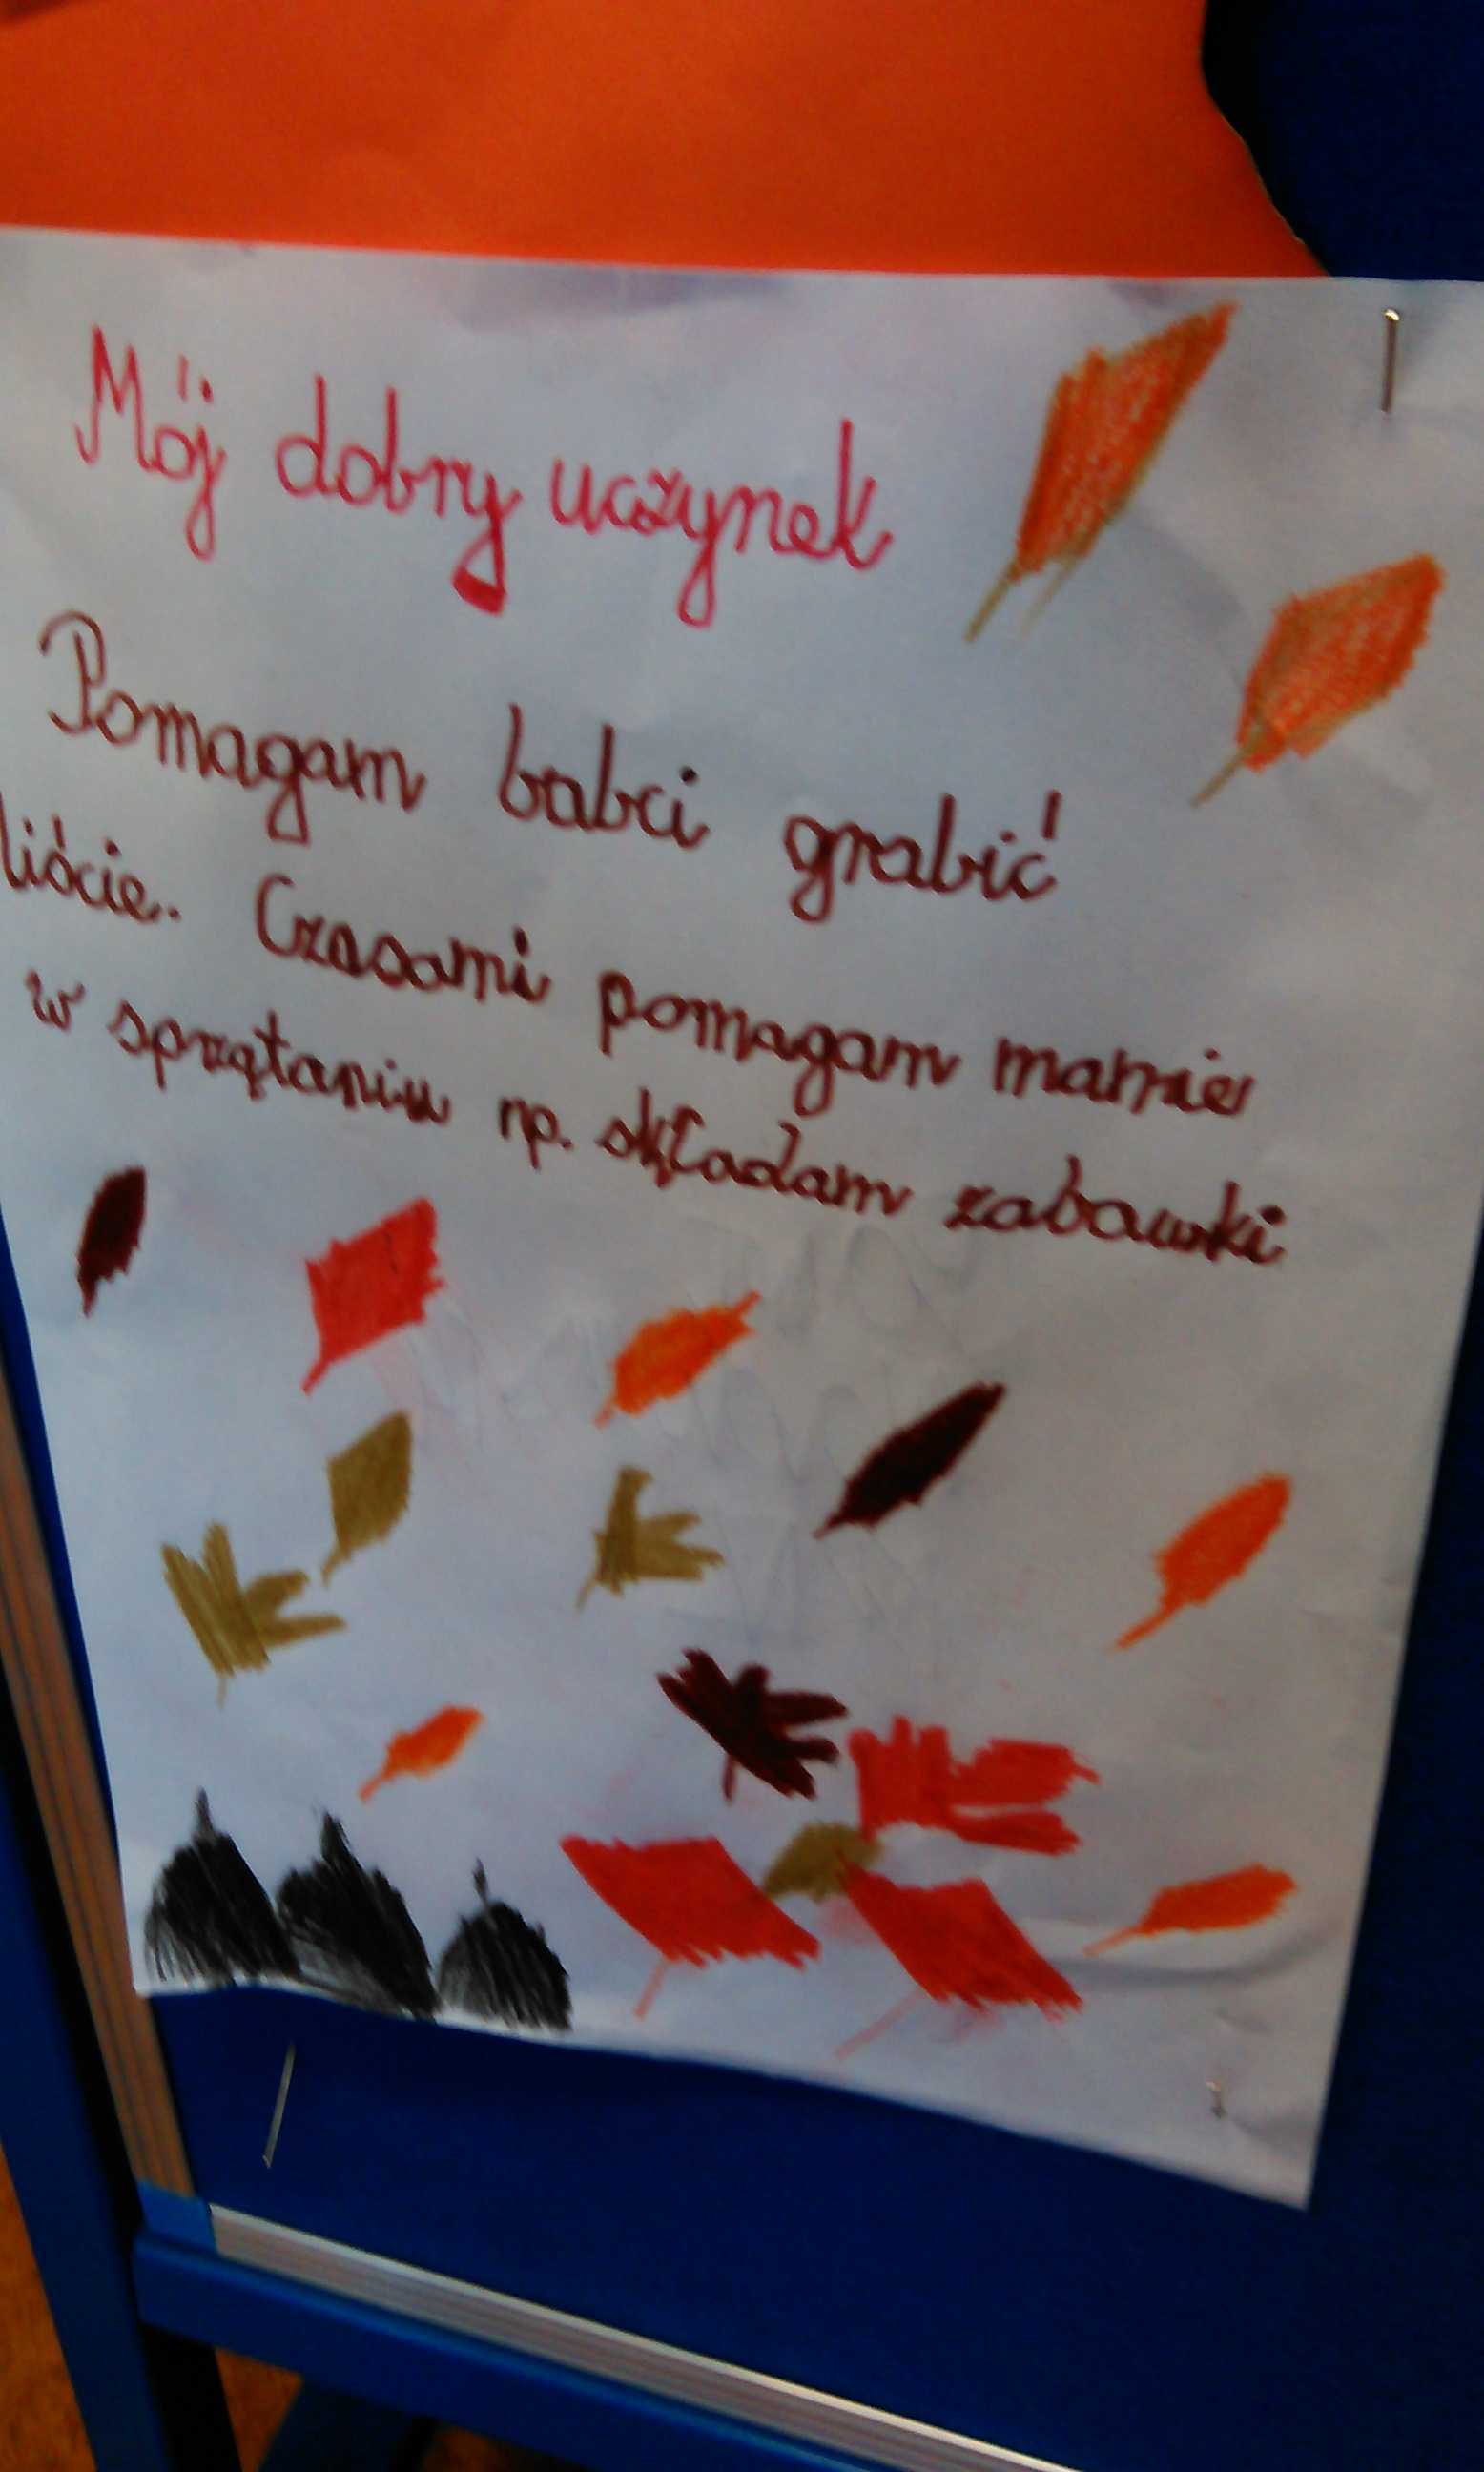 Mój dobry uczynek
Pomagam babci grabić
liście. Czasami pomagam mamie
w sprzątaniu np. składam zabawki